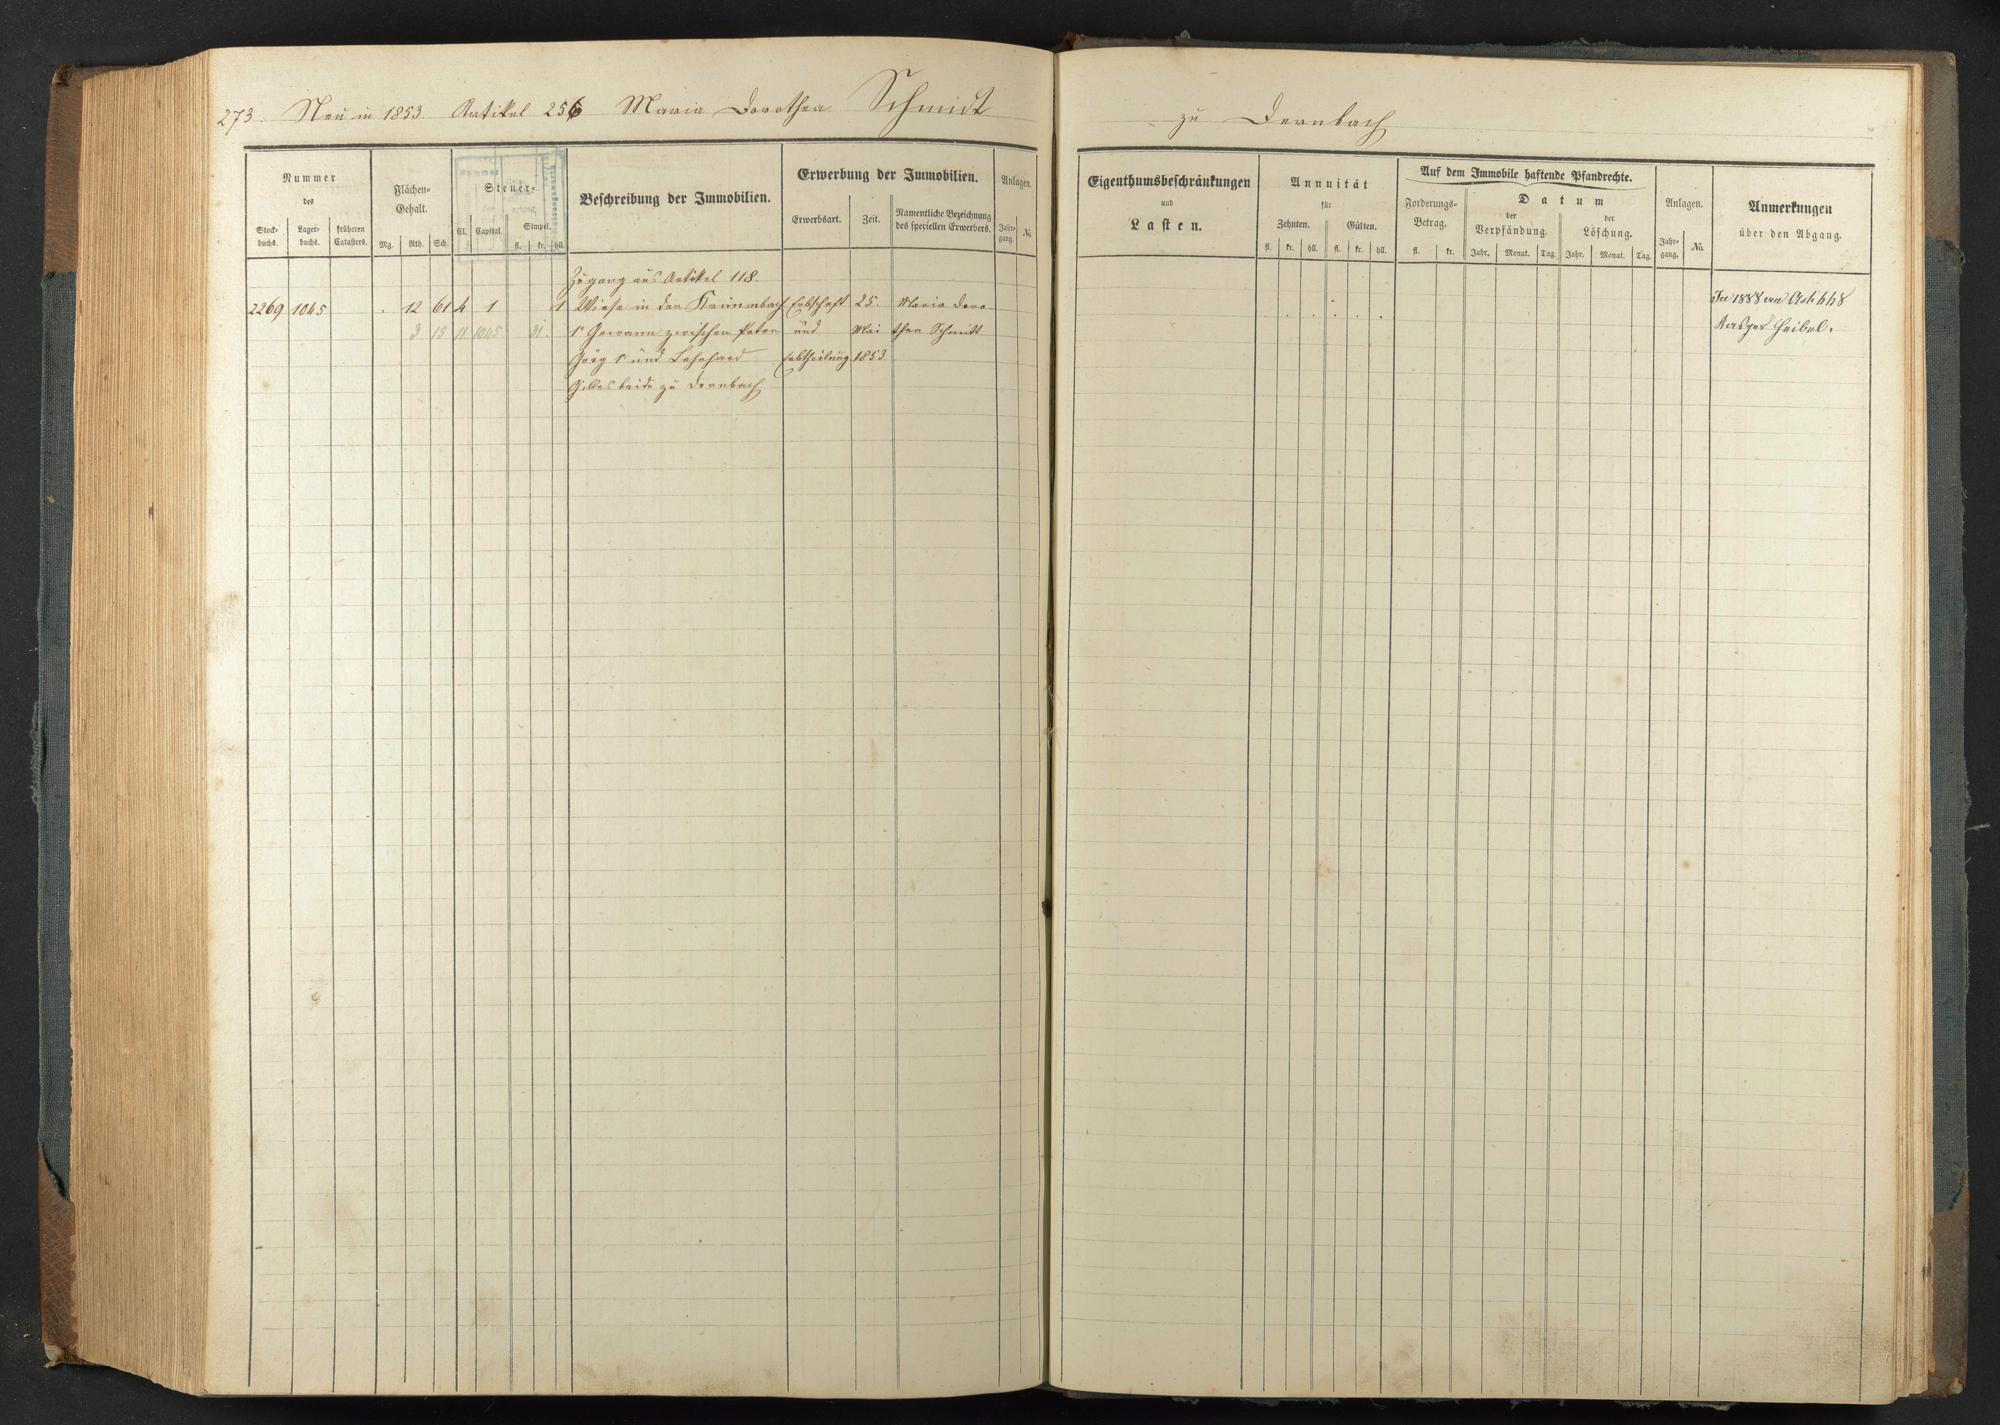 273. Neu in 1853. Artikel 256 Maria Dorothea Schmidt
zu Dernbach
Nummer
des
Stock-
buchs.
Lager-
buchs.
früheren
Catasters.
Flächen-
Gehalt.
Mg. Rth. Sch.
Steuer-
Cl. Capital. Simpel.
fl. kr. hll.
Beschreibung der Immobilien.
Erwerbung der Immobilien.
Erwerbsart. Zeit.
Namentliche Bezeichnung
des speciellen Erwerbers.
Anlagen.
Jahr-
gang. No.
Zugang aus Artikel 118.
2269 1045 . 12 61 4 1 1 Wiese in der Krümmbach Erbschaft 25. Maria Doro
3 15 11 1045 31. 1r Gewann zwischen Peter und Mai thea Schmitt
Görg und Erbtheilung 1853
Gilles beide zu Dernbach
Eigenthumsbeschränkungen
und
Lasten.
Annuität
für
Zehnten. Gülten.
fl. kr. hll. fl. kr. hll.
Auf dem Immobile haftende Pfandrechte.
Forderungs-
Betrag.
fl. kr.
Datum
der
Verpfändung.
der
Löschung.
Jahr. Monat. Tag. Jahr. Monat. Tag.
Anlagen.
Jahr-
gang. No.
Anmerkungen
über den Abgang.
In 1888 an Art 448
Kasper Heibel.